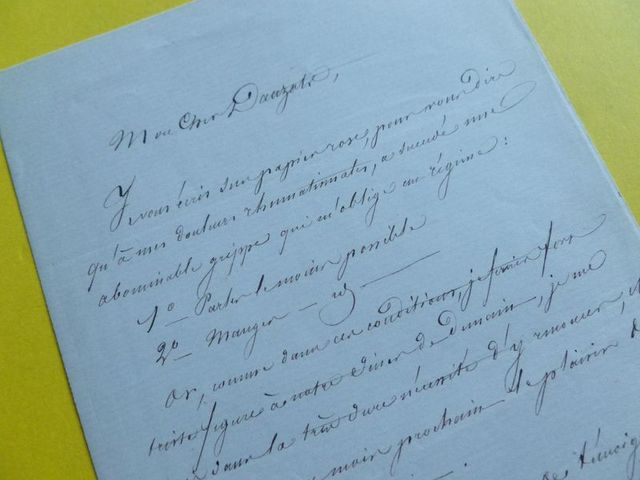 Mon Cher Dauzats,
Je vous écris sur papier rose, pour vous dire
qu'à mes douleurs rhumatismales, a succédé une
abominable grippe qui m'oblige au régime :
1o — Parler le moins possible
2o — Manger — id —
Or, comme dans ces conditions, je ferais fort
triste figure à notre dîner de demain, je me
dans la très dure nécessité d'y renoncer, et
mois prochain le plaisir d
de témoig